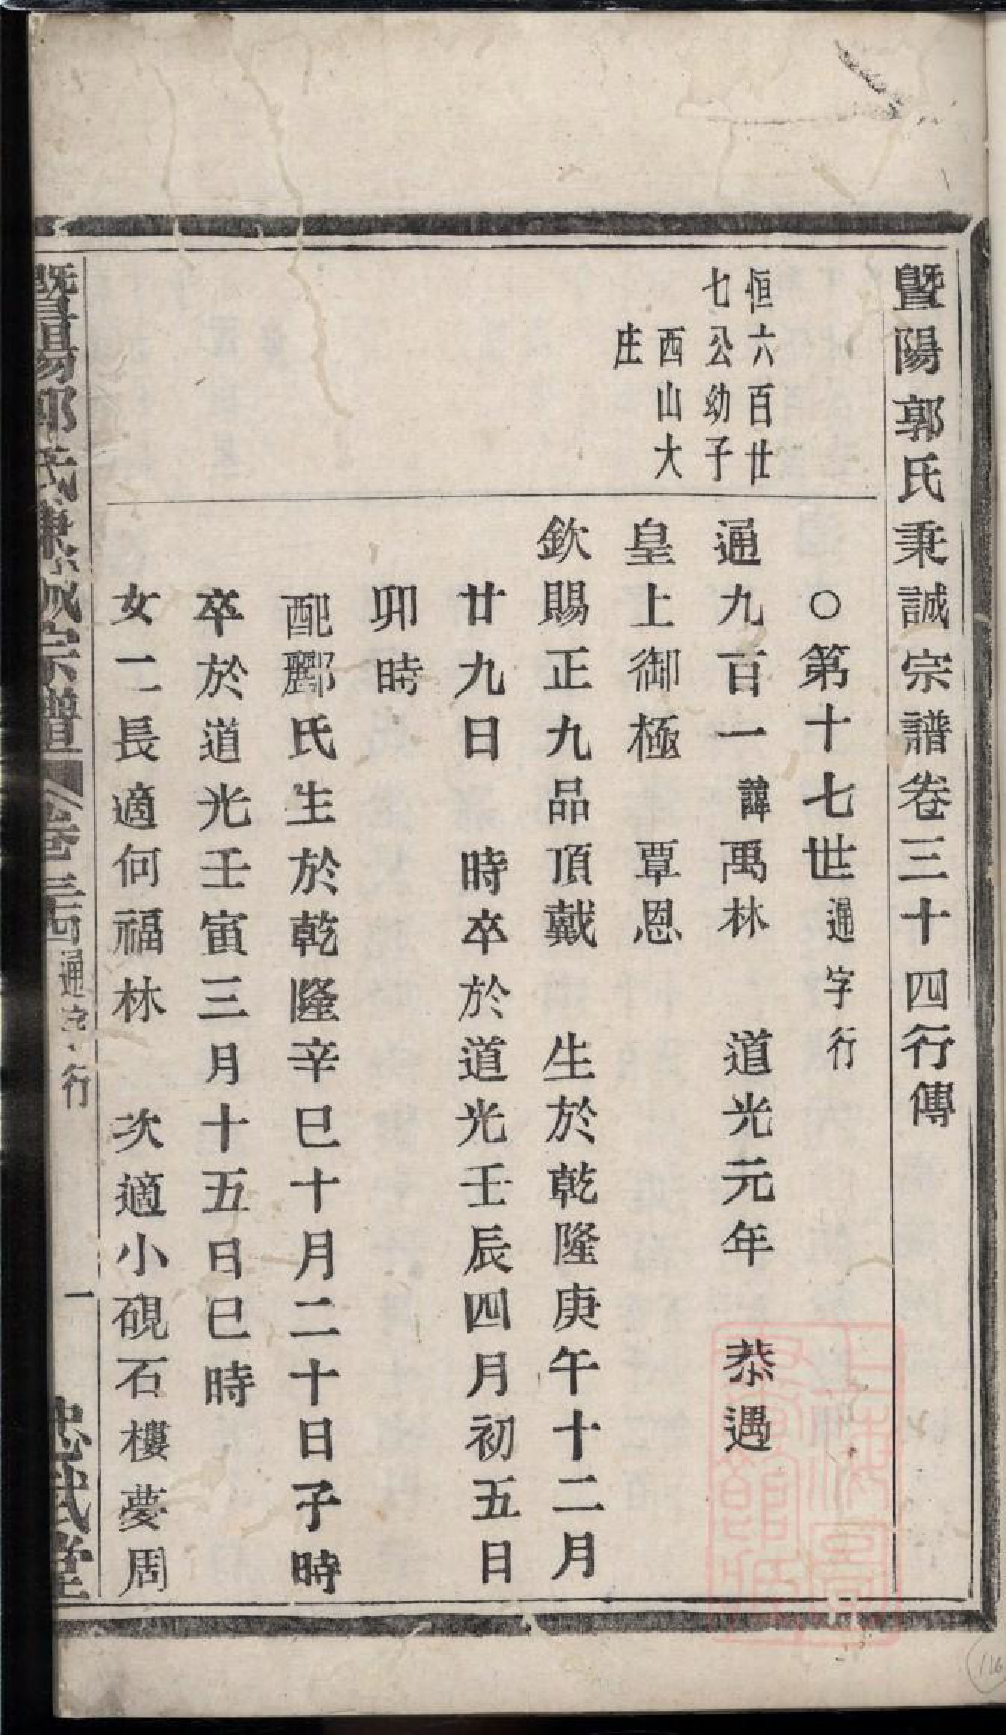 暨陽郭氏秉誠宗譜卷三十四行傳
○第十七世通字行
恒六百廿
七公幼子
西山大
庄
通九百一諱禹林 道光元年 恭遇
皇上御極 覃恩
欽賜正九品頂戴 生於乾隆庚午十二月
廿九日 時卒於道光壬辰四月初五日
卯時
配酈氏生於乾隆辛巳十月二十日子時
卒於道光壬寅三月十五日巳時
女二長適何福林 次適小硯石樓夢周
暨陽郭氏秉誠宗譜 卷三十四 通字行 一 忠武堂